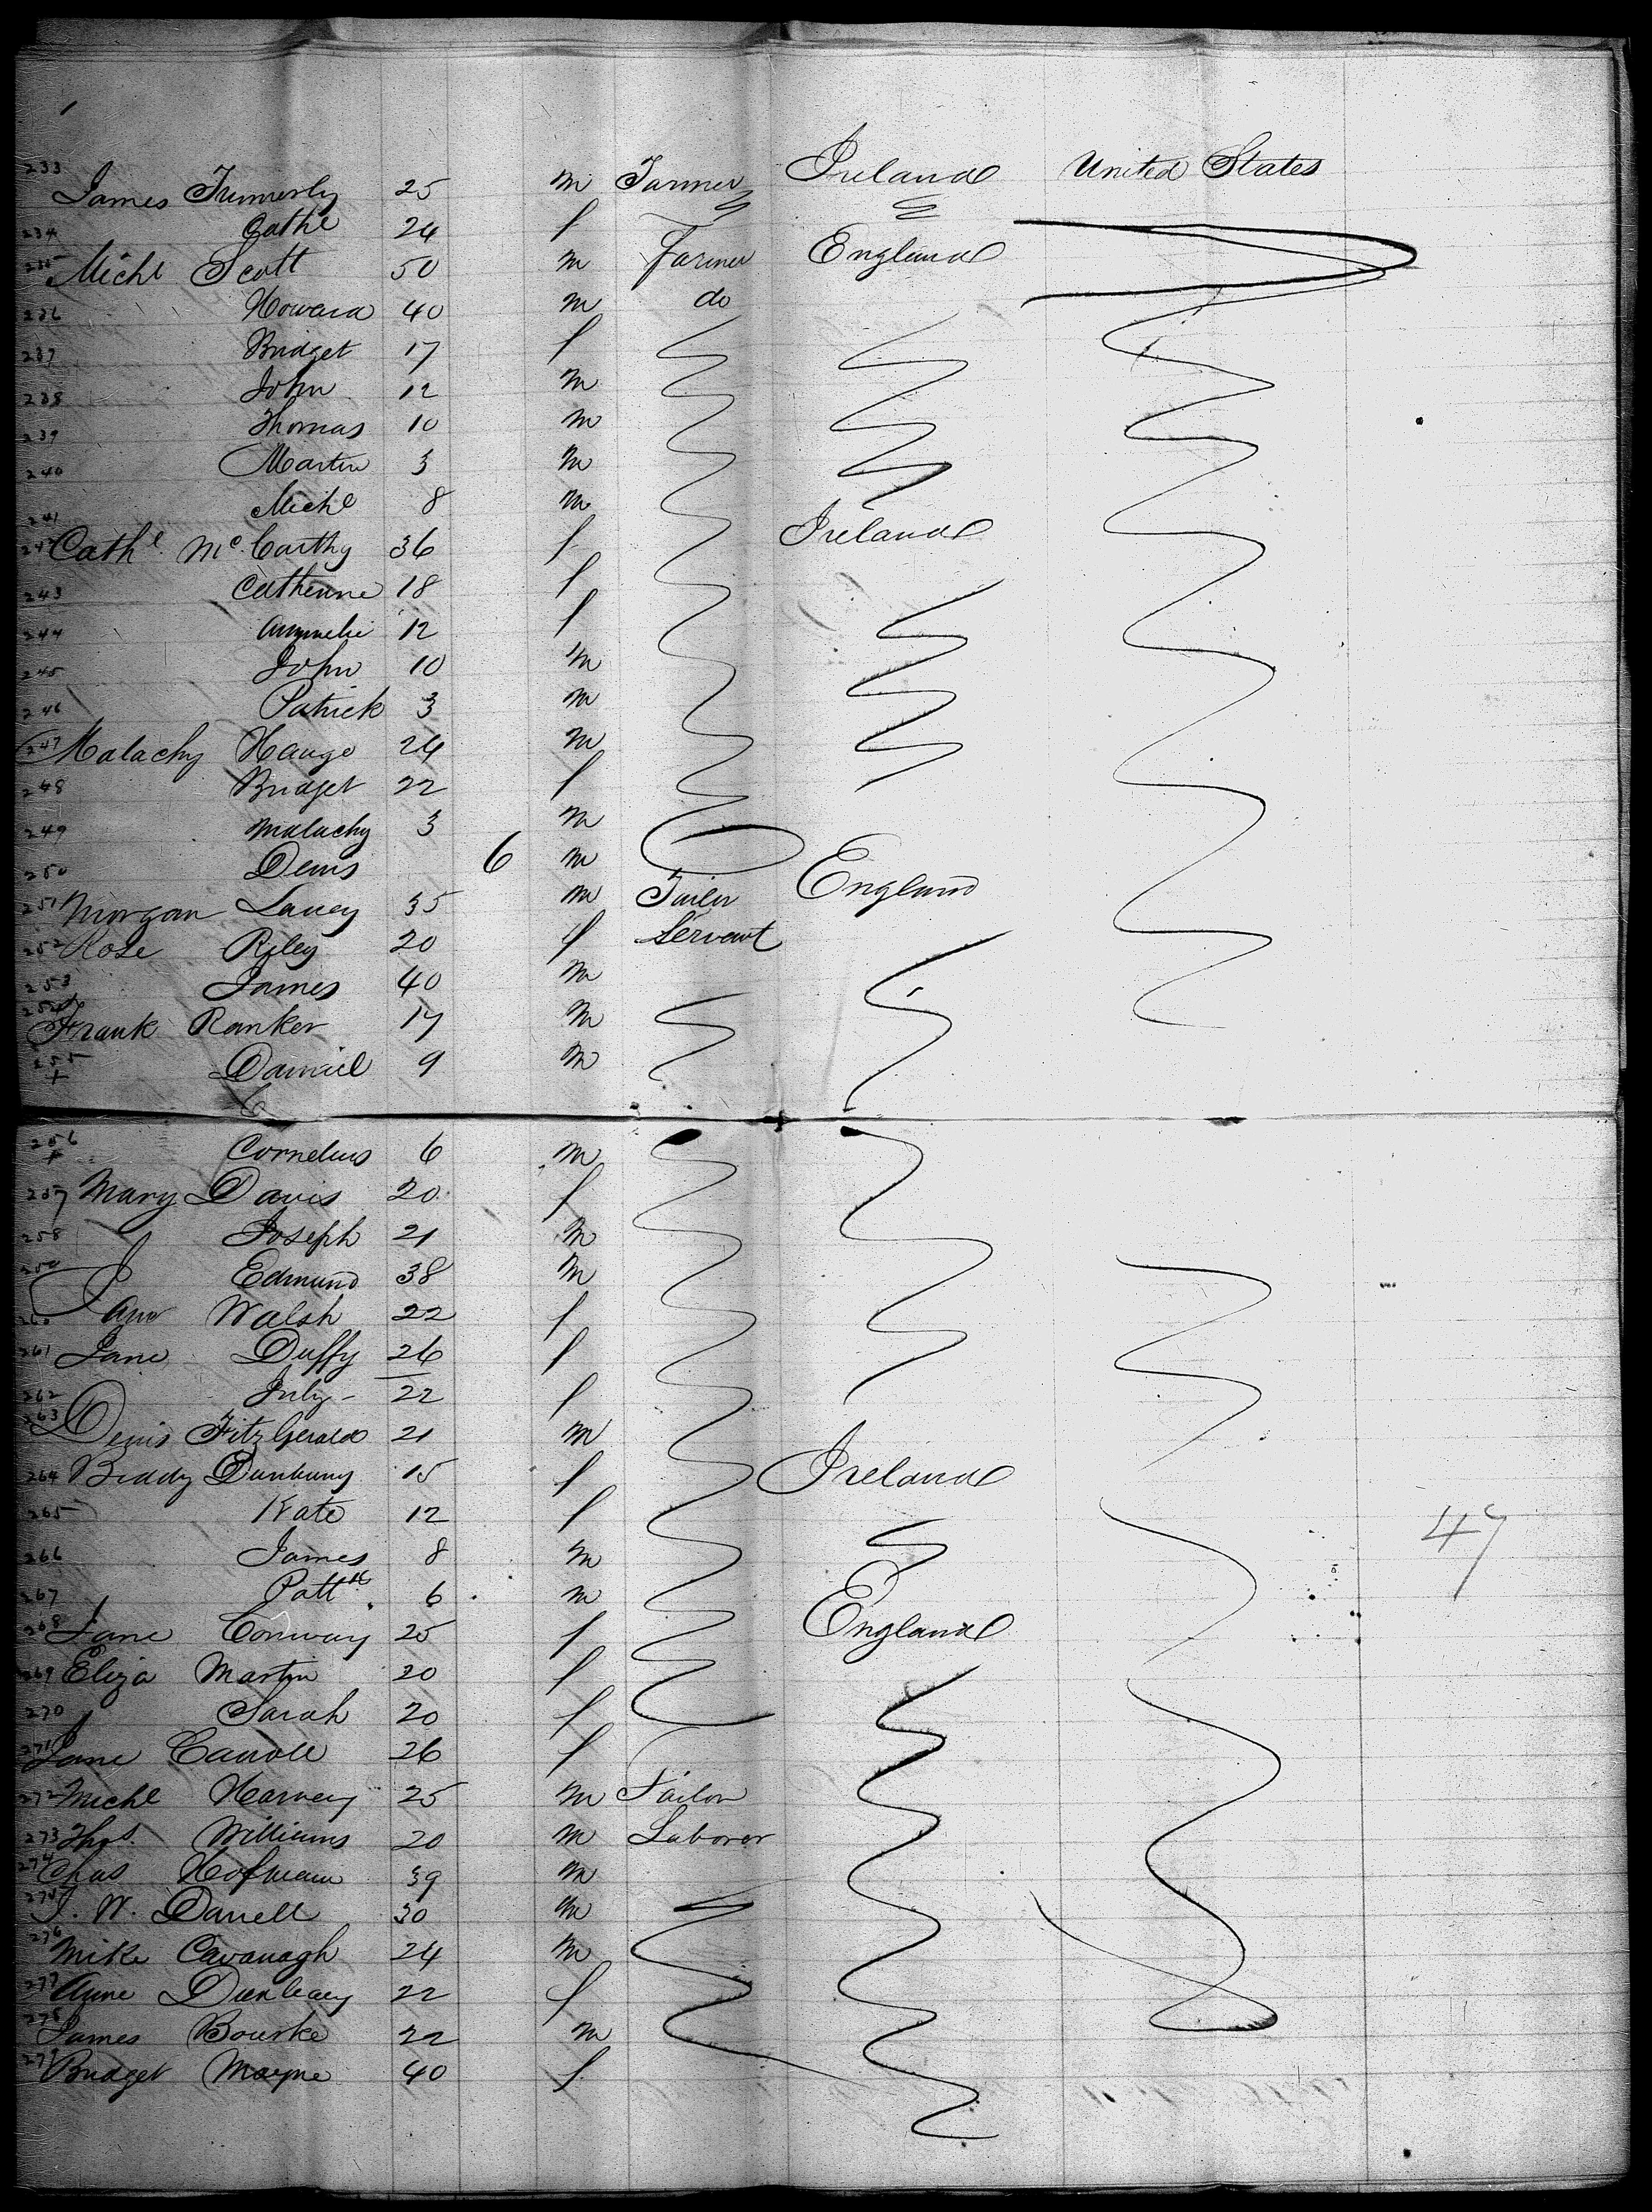 233 James Trumerly 25 m Farmer Ireland United States
234 Cathe 24 f
235 Michl Scott 50 m Farmer England
236 Howard 40 m do
237 Bridget 17 f
238 John 12 m
239 Thomas 10 m
240 Martin 3 m
241 Michl 8 m
242 Cathe McCarthy 36 f Ireland
243 Catherine 18 f
244 12 f
245 John 10 m
246 Patrick 3 m
247 Malachy Hango 24 m
248 Bridget 22 f
249 Malachy 3 m
250 Denis 6 m
251 Morgan Lacey 35 m Tailor England
252 Rose Riley 20 f Servant
253 James 40 m
254 Frank Ranker 17 m
255 + Daniel 9 m
256 + Cornelius 6 m
257 Mary Davis 20 f
258 Joseph 21 m
259 Edmund 38 m
260 Ann Walsh 22 f
261 Jane Duffy 26 f
262 July 22 f
263 Denis FitzGerald 21 m
264 Biddy Dunbury 15 f Ireland
265 Kate 12 f
266 James 8 m 47
267 Pattk 6 m
268 Jane Conway 25 f England
269 Eliza Martin 20 f
270 Sarah 20 f
271 Jane Carroll 26 f
272 Michl Harvey 25 m Tailor
273 Thos. Williams 20 m Laborer
274 Chas Hofmann 39 m
275 J. W. Darrell 30 m
276 Mike Cavanagh 24 m
277 Anne Dunleavy 22 f
278 James Bourke 22 m
279 Bridget Mayne 40 f